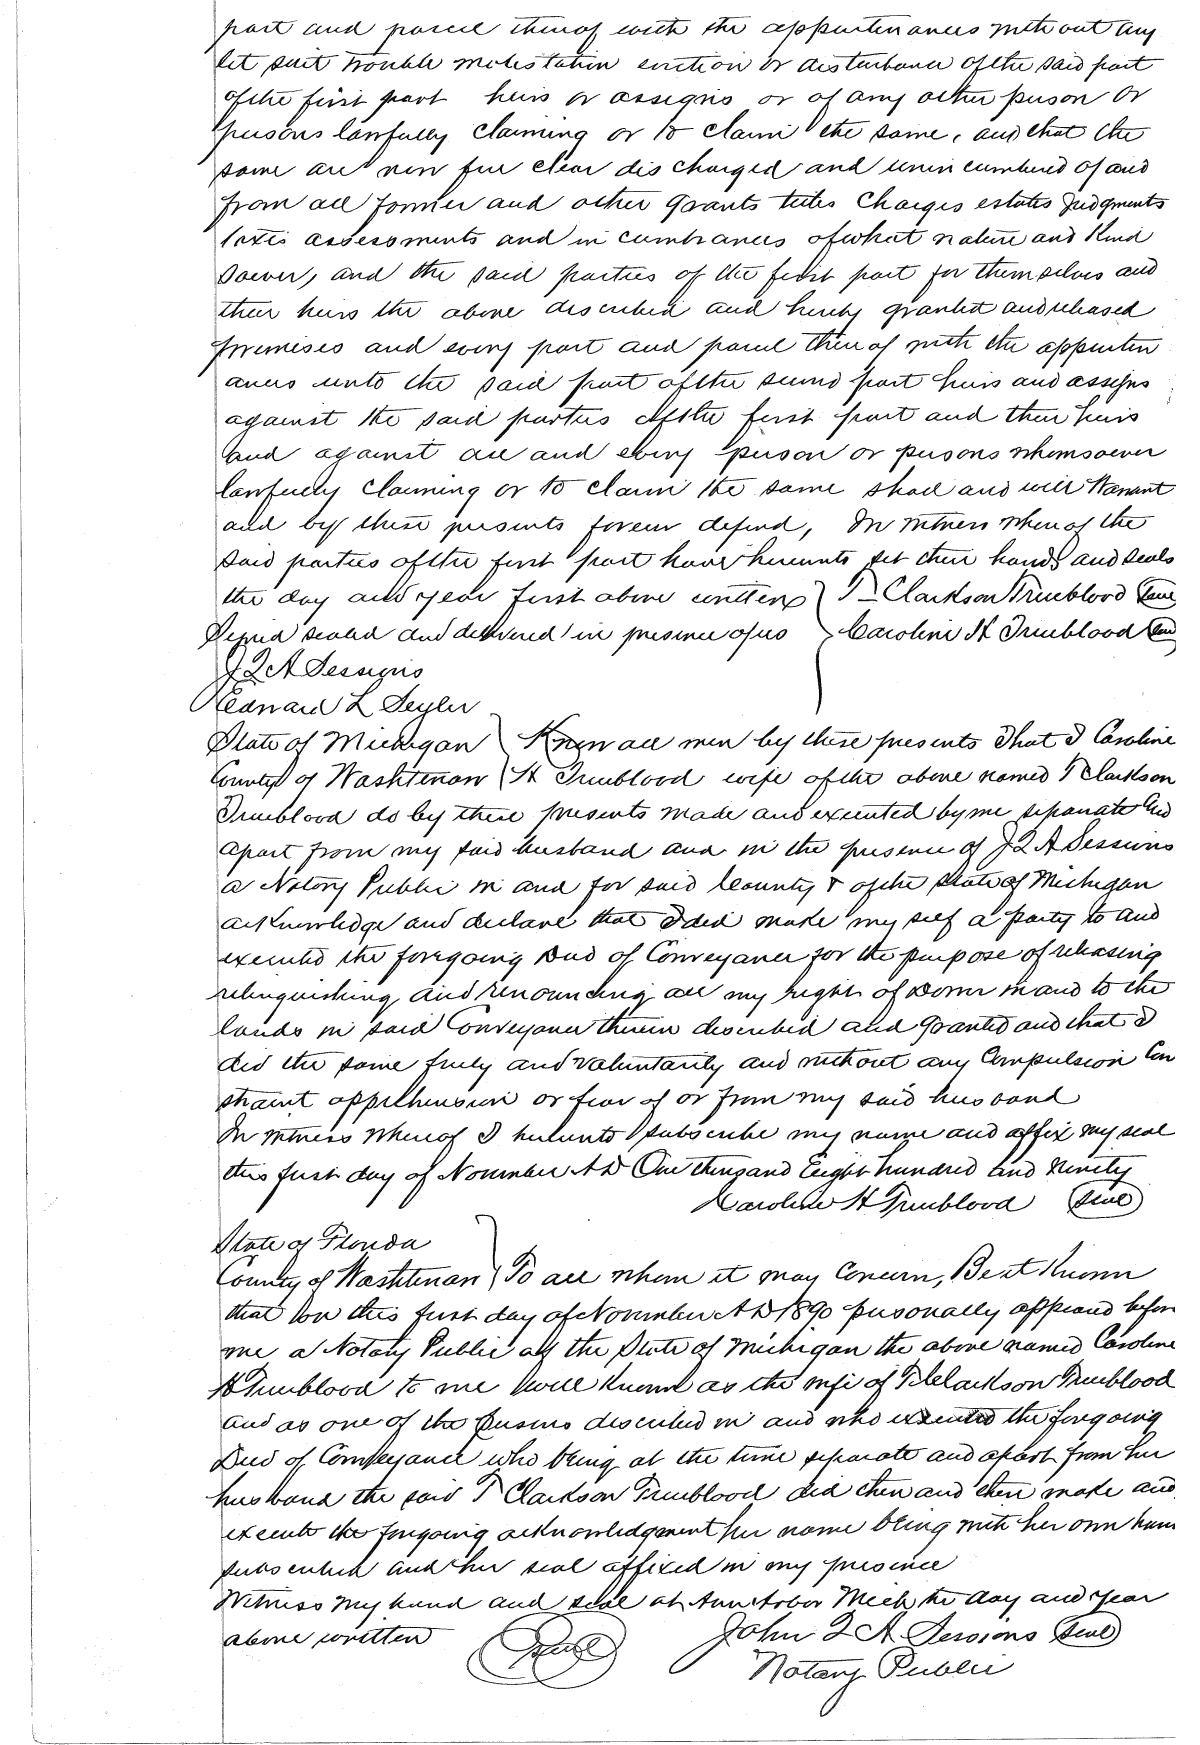 part and parcel thereof with the appurtenances without any
let suit trouble molestation eviction or disturbance of the said part
of the first part heirs or assigns or of any other person or
persons lawfully claiming or to claim the same, and that the
same are now free clear discharged and unincumbered of and
from all former and other grants titles charges estates Judgments
taxes assessments and incumbrances of what nature and Kind
soever, and the said parties of the first part for themselves and
their heirs the above described and hereby granted and released
premises and every part and parcel thereof with the appurten
ances unto the said part of the second part heirs and assigns
against the said parties of the first part and their heirs
and against all and every person or persons whomsoever
lawfully claiming or to claim the same shall and will Warrant
and by these presents forever defend, In witness whereof the
said parties of the first part have hereunto set their hands and seals
the day and year first above written } T Clarkson Trueblood Seal
Signed sealed and delivered in presence of us } Caroline H Trueblood Seal
J Q A Sessions
Edward L Seyler
State of Michigan } Know all men by these presents That I Caroline
County of Washtenaw } H Trueblood wife of the above named T Clarkson
Trueblood do by these presents made and executed by me separate and
apart from my said husband and in the presence of J Q A Sessions
a Notary Public in and for said County & of the State of Michigan
acknowledge and declare that I did make my self a party to and
executed the foregoing Deed of Conveyance for the purpose of releasing
relinquishing and renouncing all my right of Dower in and to the
lands in said Conveyance therein described and granted and that I
did the same freely and voluntarily and without any Compulsion Con
straint apprehension or fear of or from my said husband
In witness whereof I hereunto subscribe my name and affix my seal
this first day of November A D One thousand Eight hundred and Ninety
Caroline H Trueblood Seal
State of Florida
County of Washtenaw } To all whom it may Concern, Be it Known
that on this first day of November A D 1890 personally appeared before
me a Notary Public of the State of Michigan the above named Caroline
H Trueblood to me well Known as the wife of T Clarkson Trueblood
and as one of the persons described in and who executed the foregoing
Deed of Conveyance who being at the time separate and apart from her
husband the said T Clarkson Trueblood did then and there make and
execute the foregoing acknowledgment her name being with her own hand
subscribed and her seal affixed in my presence
Witness my hand and seal at Ann Arbor Mich the day and year
above written Seal John Q A Sessions Seal
Notary Public